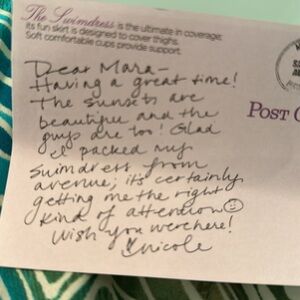 The Swimdress is the ultimate in coverage;
its fun skirt is designed to cover thighs.
Soft comfortable cups provide support.
Dear Mara-
Having a great time!
The sunsets are
beautiful and the
guys are too! Glad
I packed my
swimdress from
avenue; it's certainly
getting me the right
kind of attention☺
Wish you were here!
Nicole
POST